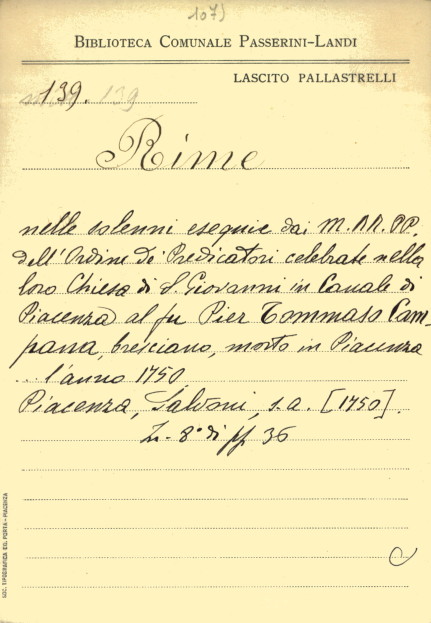 107)
BIBLIOTECA COMUNALE PASSERINI-LANDI
LASCITO PALLASTRELLI
139. 139
Rime
nelle solenni esequie dai M.RR.PP.
dell'Ordine de' Predicatori celebrate nella
loro Chiesa di S. Giovanni in Canale di
Piacenza al fu Pier Tommaso Cam-
pana, bresciano, morto in Piacenza
... l'anno 1750
Piacenza, Salvoni, s.a. [1750].
In-8° di pp 36
SOC. TIPOGRAFICA ED. PORTA - PIACENZA